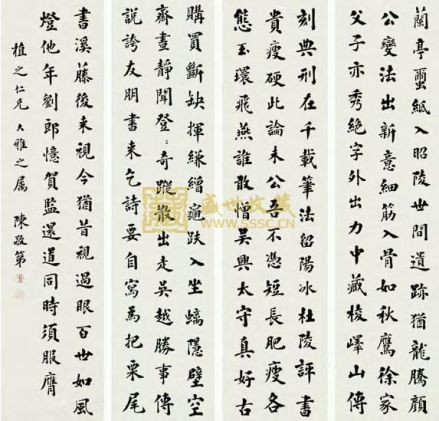 蘭亭蠒紙入昭陵世間遺跡猶龍騰顏
公變法出新意細筋入骨如秋鷹徐家
父子亦秀絕字外出力中藏棱嶧山傳
刻典刑在千載筆法留陽冰杜陵評書
貴瘦硬此論未公吾不憑短長肥瘦各
態玉環飛燕誰敢憎吳興太守真好古
購買斷缺揮縑繒龜趺入坐螭隱壁空
齋晝靜聞登〻奇蹤散出走吳越勝事傳
說誇友朋書來乞詩要自寫為把栗尾
書溪藤後來視今猶昔視過眼百世如風
燈他年劉郎憶賀監還道同時須服膺
植之仁兄大雅之屬 陳敬第
盛世收藏
WWW.SSSC.CN